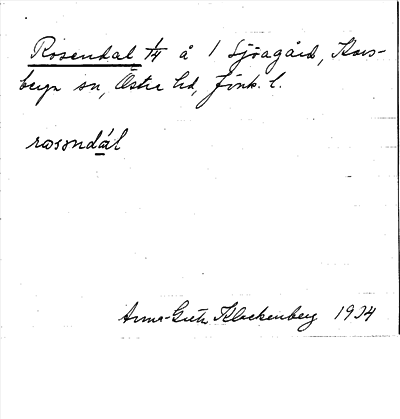 Rosendal 1/4 å 1 Sjöagård, Kors-
berga sn, Östra hd, Jönk. l.
rosɘndál
Anna-Greta Klockenberg 1934